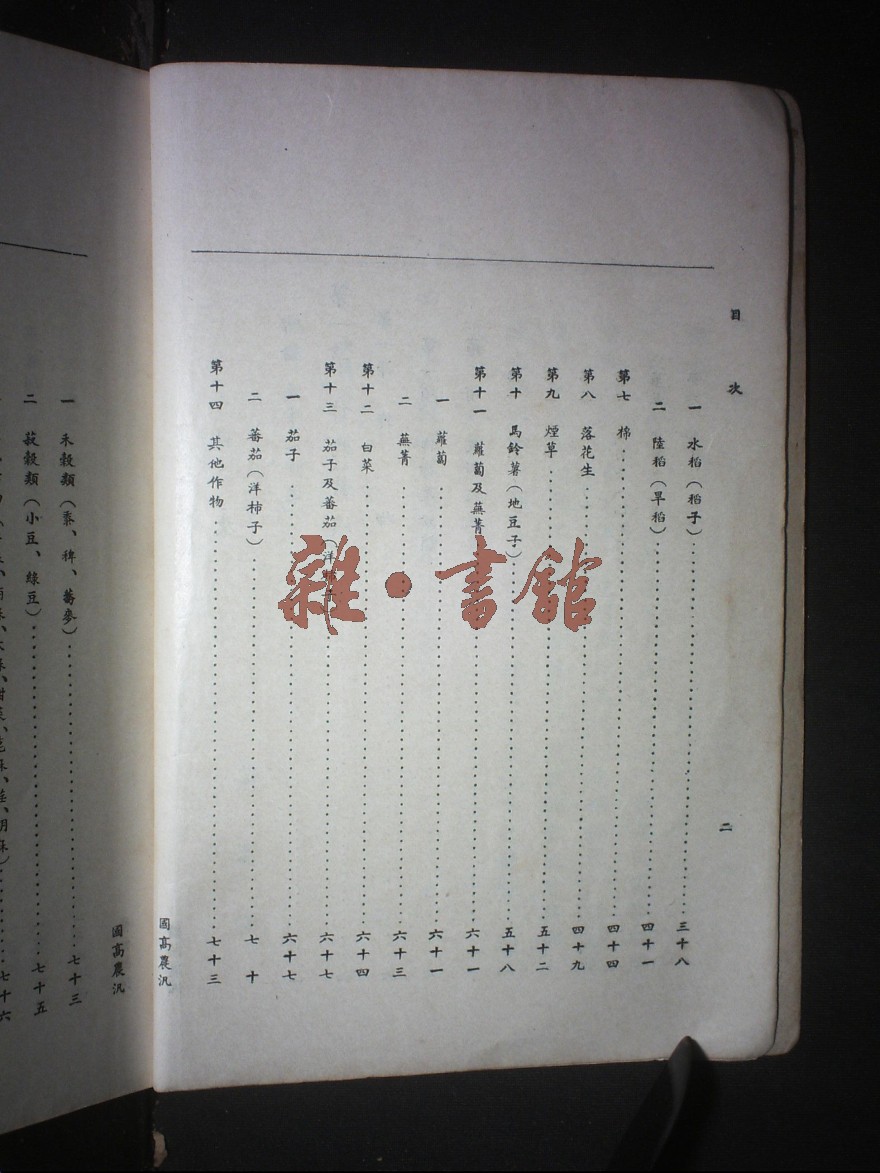 目次
二
一 水稻(稻子)……三十八
二 陸稻(旱稻)……四十一
第七 棉……四十四
第八 落花生……四十九
第九 煙草……五十二
第十 馬鈴薯(地豆子)……五十八
第十一 蘿蔔及蕪菁……六十一
一 蘿蔔……六十一
二 蕪菁……六十三
第十二 白菜……六十四
第十三 茄子及蕃茄(洋柿子)……六十七
一 茄子……六十七
二 蕃茄(洋柿子)……七十
第十四 其他作物……七十三
國高農汎
一 禾穀類(黍、稗、蕎麥)……七十三
二 菽穀類(小豆、綠豆)……七十五
七十六
國高農汎
雜·書館